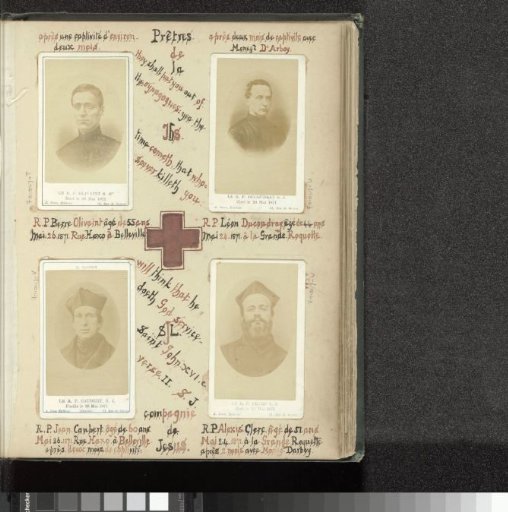 après une captivité d'environ
deux mois.
Prêtres
de
la
après deux mois de captivité avec
Monsgr D'Arboy.
they shall put you out of
the synagogues; yea the
Jhs.
time cometh, that who-
soever killeth you
LE R. P. OLIVAINT S. J.
LE R. P. DUCOUDRAY S. J.
R.P. Pierre Olivaint âgé de 55 ans
Mai 26. 1871 Rue Haxo à Belleville
R.P. Léon Ducoudray âgé de 44 ans
Mai 24. 1871. à la Grande Roquette
will think that he
doeth God service.
S L.
Saint John XVI. c.
verse II.
S. J.
LE R. P. CAUBERT, S. J.
LE R. P. CLERC S. J.
compagnie
de
Jesus.
R.P. Jean Caubert âgé de 60 ans
Mai 26. 1871 Rue Haxo à Belleville
après deux mois de
R.P. Alexis Clerc, âgé de 51 ans
Mai 24. 1871 à la Grande Roquette
après 2 mois avec Darboy.